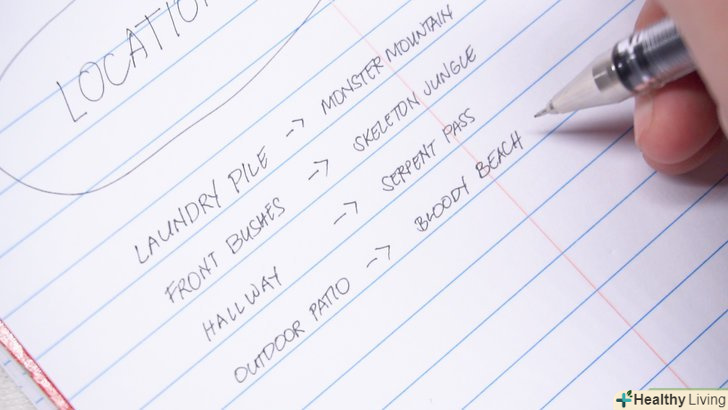 LOCATION
LAUNDRY PILE -> MONSTER MOUNTAIN
FRONT BUSHES -> SKELETON JUNGLE
HALLWAY -> SERPENT PASS
OUTDOOR PATIO -> BLOODY BEACH
Healthy Living